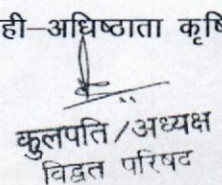 ही–अधिष्ठाता कृषि
कुलपति/अध्यक्ष
विद्वत परिषद